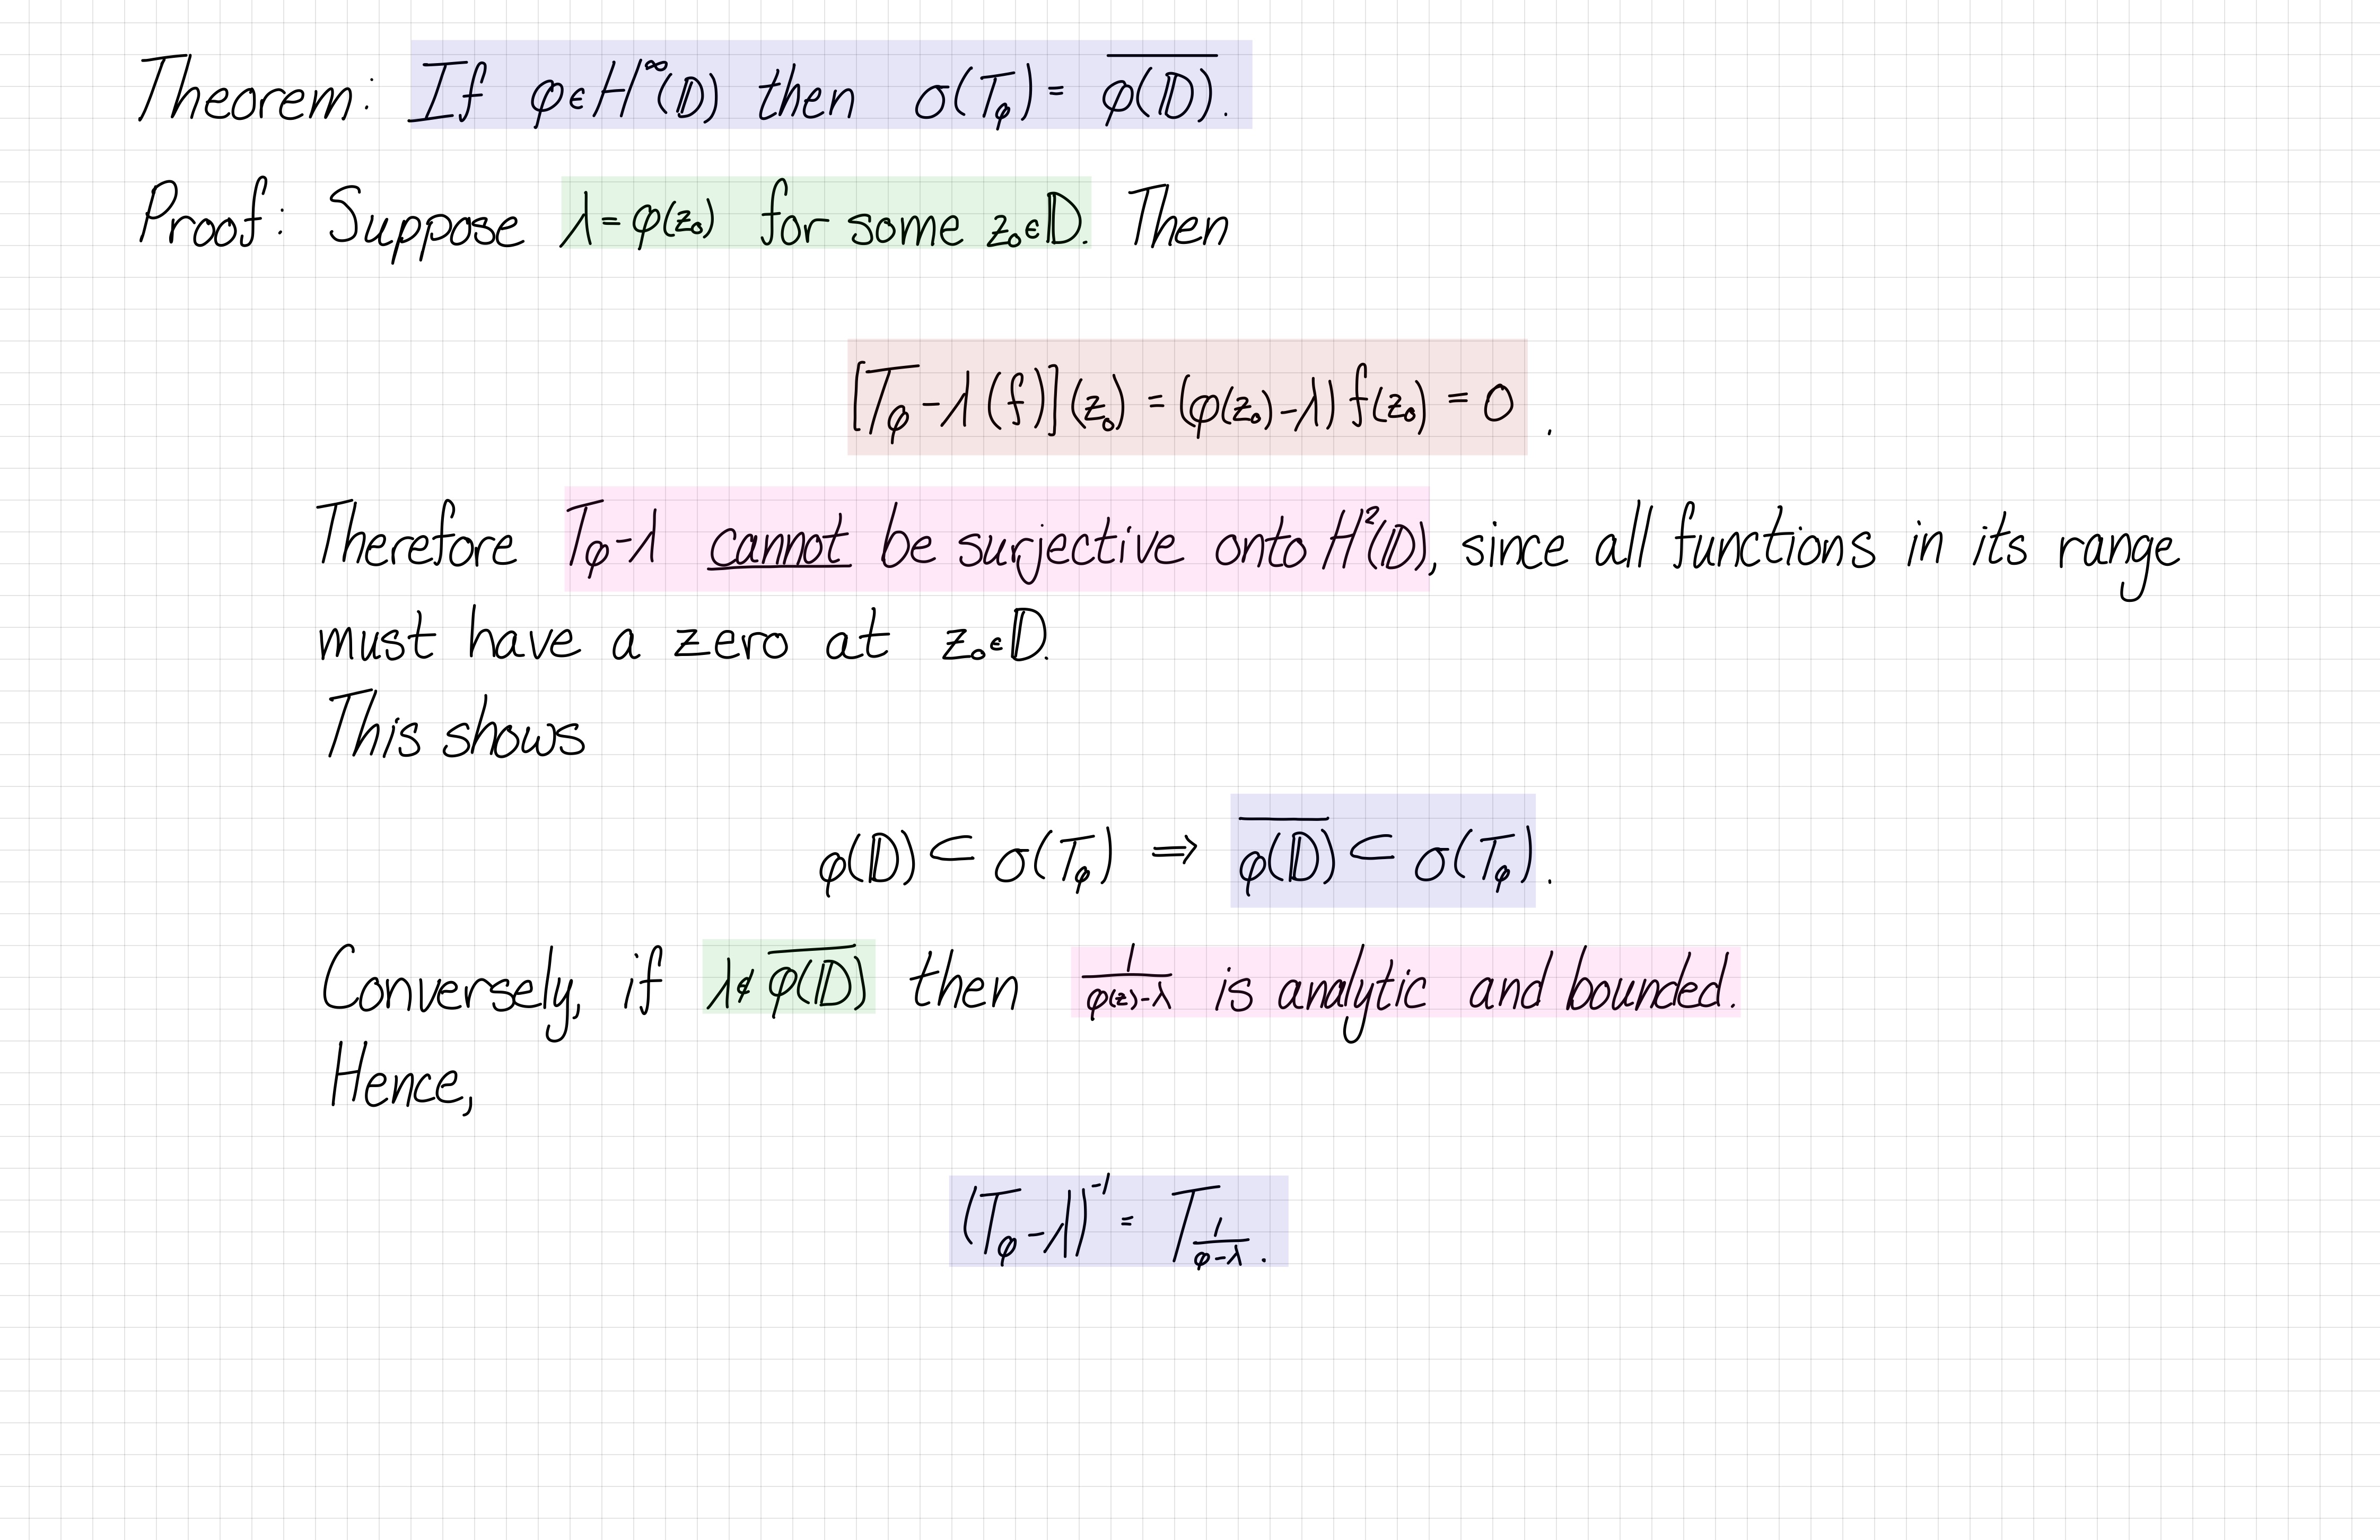 Theorem: If φ∈H^∞(𝔻) then σ(T_φ) = \overline{φ(𝔻)}.
Proof: Suppose λ = φ(z₀) for some z₀∈𝔻. Then
[T_φ - λ (f)](z₀) = (φ(z₀) - λ) f(z₀) = 0 .
Therefore T_φ - λ cannot be surjective onto H²(𝔻), since all functions in its range
must have a zero at z₀∈𝔻.
This shows
φ(𝔻) ⊂ σ(T_φ) ⇒ \overline{φ(𝔻)} ⊂ σ(T_φ).
Conversely, if λ∉\overline{φ(𝔻)} then \frac{1}{φ(z)-λ} is analytic and bounded.
Hence,
(T_φ - λ)^{-1} = T_{\frac{1}{φ-λ}}.